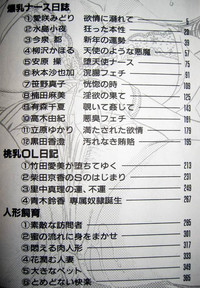 爆乳ナース日誌
①愛咲みどり 欲情に溺れて 5
②水島小夜 狂った本性
③今泉都 新年の運勢
④柳沢かほる 天使のような悪魔
⑤安原操 堕天使ナース
⑥秋本沙也加 浣腸フェチ
⑦笹野真子 恍惚の時
⑧楠田麻美 淫欲の果て
⑨有森千夏 覗いて感じて
⑩高木由紀 悪臭フェチ
⑪立原ゆかり 満たされた欲情 179
⑫黒田香澄 汚れなき賄賂 195
桃乳OL日記
①竹田愛美が堕ちてゆく 213
②柴田京香のSのはじまり 231
③里中真理の運、不運 249
④青木鈴香 専属奴隷誕生 267
人形飼育
①素敵な訪問者 285
②蜜の流れに身をまかせ 301
③悶える肉人形 317
④花貫む人妻 331
⑤大きなペット 349
⑥とめどない快楽 365